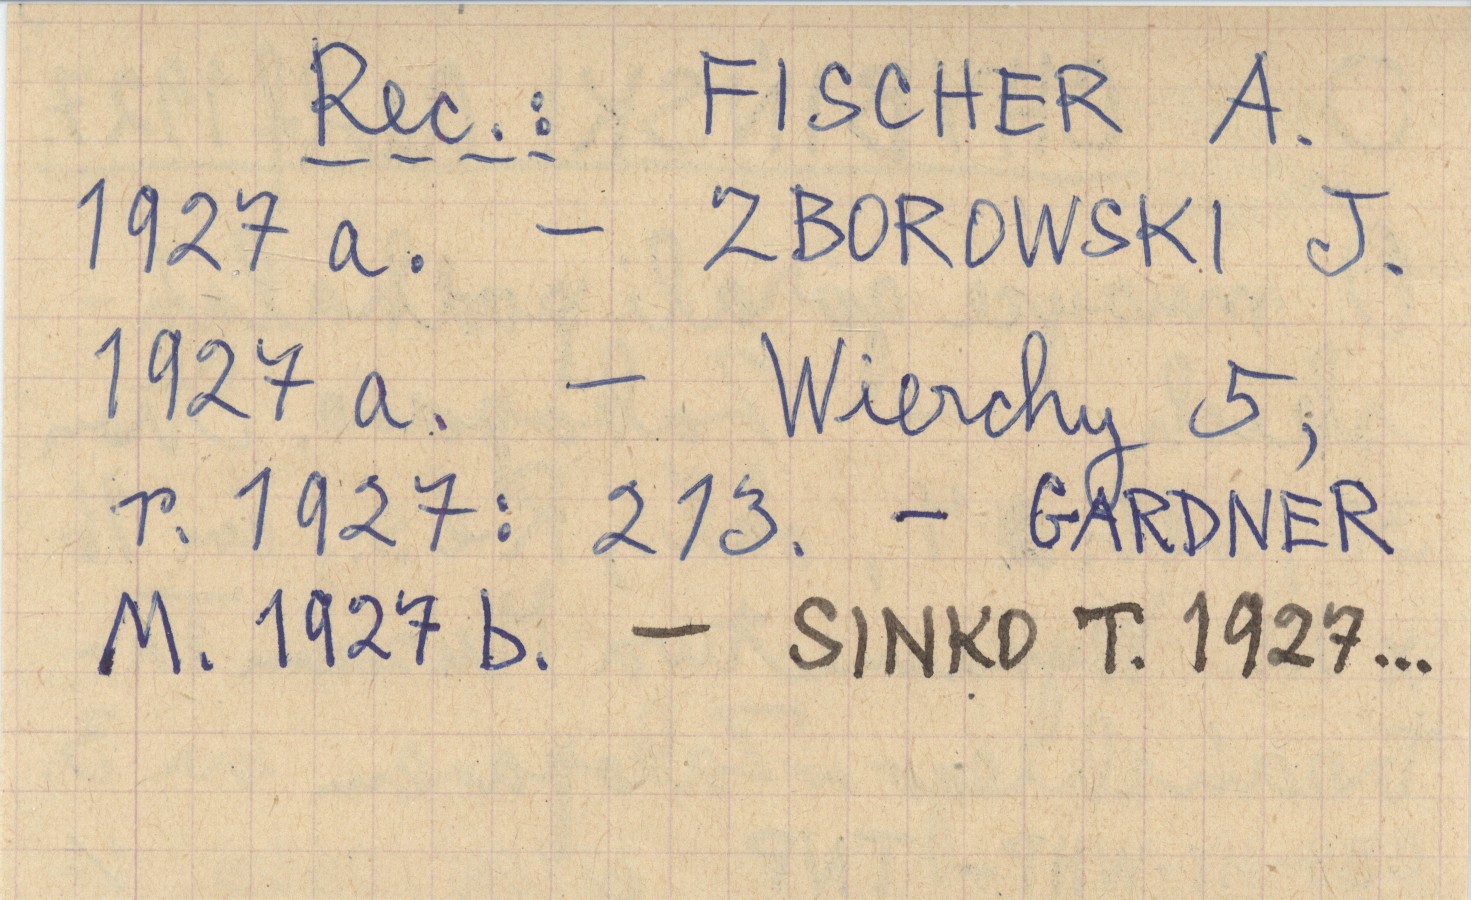 Rec.: FISCHER A.
1927 a. – ZBOROWSKI J.
1927 a. – Wierchy 5,
r. 1927: 213. – GARDNER
M. 1927 b. – SINKO T. 1927...